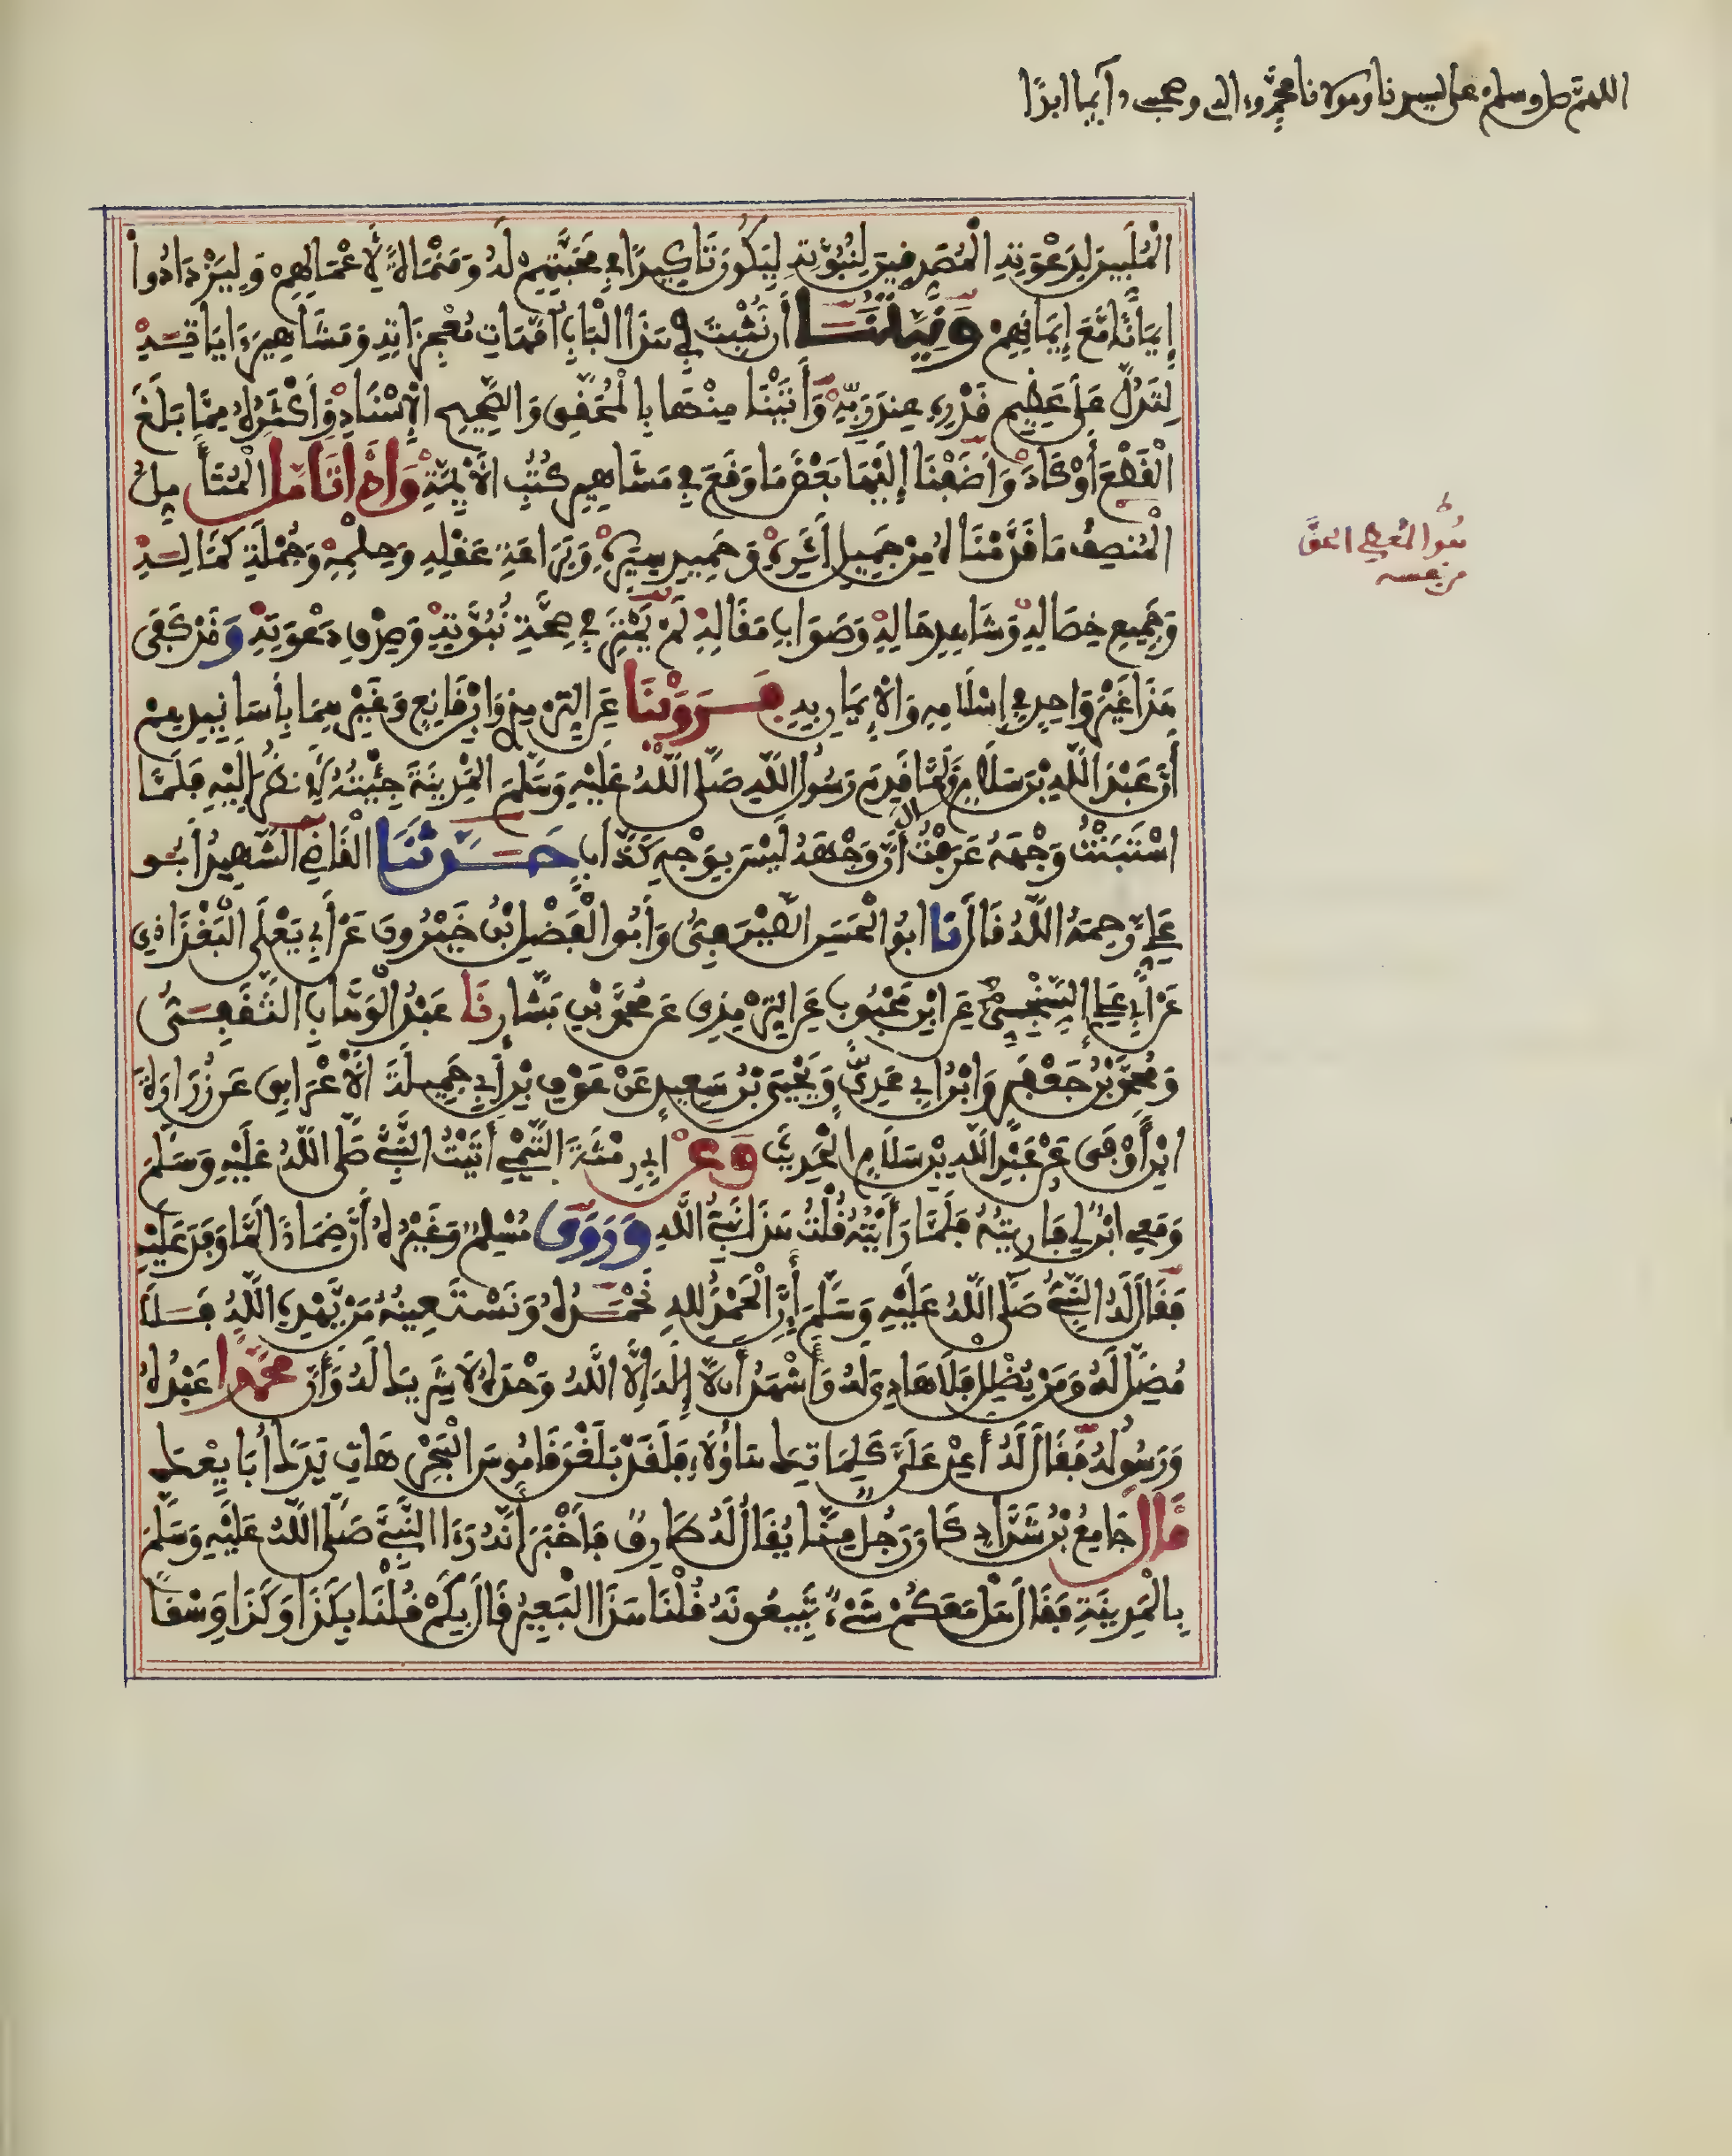 اللهم صل وسلم على سيدنا ومولانا محمد وءاله وصحبه دائما ابدا
الْمُلَبِّينَ لِدَعْوَتِهِ الْمُصَدِّقِينَ لِنُبُوَّتِهِ لِيَكُونَ تَاكِيدًا فِي مَحَبَّتِهِمْ لَهُ وَمَنْمَاةً لِأَعْمَالِهِمْ وَلِيَزْدَادُوا
إِيمَانًا مَّعَ إِيمَانِهِمْ وَنِيَّتُنَا أَن نُّثْبِتَ فِي هَذَا الْبَابِ أُمَّهَاتِ مُعْجِزَاتِهِ وَمَشَاهِيرَ ءَايَاتِهِ
لِتَدُلَّ عَلَى عَظِيمِ قَدْرِهِ عِندَ رَبِّهِ وَأَتَيْنَا مِنْهَا بِالْمُحَقَّقِ وَالصَّحِيحِ الْإِسْنَادِ وَأَكْثَرُهُ مِمَّا بَلَغَ
الْقَطْعَ أَوْ كَادَ وَأَضَفْنَا إِلَيْهَا بَعْضَ مَا وَقَعَ فِي مَشَاهِيرِ كُتُبِ الْأَئِمَّةِ وَإِذَا تَأَمَّلَ الْمُتَأَمِّلُ
الْمُنصِفُ مَا قَدَّمْنَاهُ مِنْ جَمِيلِ أَثَرِهِ وَحَمِيدِ سِيَرِهِ وَبَرَاعَةِ عَقْلِهِ وَحِلْمِهِ وَجُمْلَةِ كَمَالِهِ
وَجَمِيعِ خِصَالِهِ وَشَاهِدِ حَالِهِ وَصَوَابِ مَقَالِهِ لَمْ يَمْتَرِ فِي صِحَّةِ نُبُوَّتِهِ وَصِدْقِ دَعْوَتِهِ وَقَدْ كَفَى
هَذَا غَيْرَ وَاحِدٍ فِي إِسْلَامِهِ وَالْإِيمَانِ بِهِ فَرَوَيْنَا عَنِ التِّرْمِذِي وَابْنِ قَانِعٍ وَغَيْرِهِمَا بِأَسَانِيدِهِمْ
أَنَّ عَبْدَ اللَّهِ بْنَ سَلَامٍ قَالَ لَمَّا قَدِمَ رَسُولُ اللَّهِ صَلَّى اللَّهُ عَلَيْهِ وَسَلَّمَ الْمَدِينَةَ جِئْتُهُ لِأَنظُرَ إِلَيْهِ فَلَمَّا
اسْتَبَنْتُ وَجْهَهُ عَرَفْتُ أَنَّ وَجْهَهُ لَيْسَ بِوَجْهِ كَذَّابٍ حَدَّثَنَا الْقَاضِي الشَّهِيدُ أَبُو
عَلِيٍّ رَحِمَهُ اللَّهُ قَالَ نَا أَبُو الْحُسَيْنِ الصَّيْرَفِيُّ وَأَبُو الْفَضْلِ بْنُ خَيْرُونَ عَنْ أَبِي يَعْلَى الْبَغْدَاذِي
عَنْ أَبِي عَلِيٍّ السِّنْجِيِّ عَنِ ابْنِ مَحْبُوبٍ عَنِ التِّرْمِذِي عَن مُّحَمَّدِ بْنِ بَشَّارٍ نَا عَبْدُ الْوَهَّابِ الثَّقَفِيُّ
وَمُحَمَّدُ بْنُ جَعْفَرٍ وَابْنُ أَبِي عَدِيٍّ وَيَحْيَى بْنُ سَعِيدٍ عَنْ عَوْفِ بْنِ أَبِي جَمِيلَةَ الْأَعْرَابِي عَن زُرَارَةَ
ابْنِ أَوْفَى عَنْ عَبْدِ اللَّهِ بْنِ سَلَامٍ الْحَدِيثَ وَعَنْ أَبِي رِمْثَةَ التَّيْمِي أَتَيْتُ النَّبِيَّ صَلَّى اللَّهُ عَلَيْهِ وَسَلَّمَ
وَمَعِي ابْنٌ لِي فَأُرِيتُهُ فَلَمَّا رَأَيْتُهُ قُلْتُ هَذَا نَبِيُّ اللَّهِ وَرَوَى مُسْلِمٌ وَغَيْرُهُ أَنَّ ضِمَادًا لَمَّا وَفَدَ عَلَيْهِ
فَقَالَ لَهُ النَّبِيُّ صَلَّى اللَّهُ عَلَيْهِ وَسَلَّمَ إِنَّ الْحَمْدَ لِلَّهِ نَحْمَدُهُ وَنَسْتَعِينُهُ مَن يَّهْدِهِ اللَّهُ فَلَا
مُضِلَّ لَهُ وَمَن يُّضْلِلْ فَلَا هَادِيَ لَهُ وَأَشْهَدُ أَن لَّا إِلَهَ إِلَّا اللَّهُ وَحْدَهُ لَا شَرِيكَ لَهُ وَأَنَّ مُحَمَّدًا عَبْدُهُ
وَرَسُولُهُ فَقَالَ لَهُ أَعِدْ عَلَيَّ كَلِمَاتِكَ هَؤُلَاءِ فَلَقَدْ بَلَغْنَ قَامُوسَ الْبَحْرِ هَاتِ يَدَكَ أُبَايِعْكَ
قَالَ جَامِعُ بْنُ شَدَّادٍ كَانَ رَجُلٌ مِنَّا يُقَالُ لَهُ طَارِقٌ فَأَخْبَرَ أَنَّهُ رَءَا النَّبِيَّ صَلَّى اللَّهُ عَلَيْهِ وَسَلَّمَ
بِالْمَدِينَةِ فَقَالَ هَلْ مَعَكُمْ شَيْءٌ تَبِيعُونَهُ قُلْنَا هَذَا الْبَعِيرُ قَالَ بِكَمْ قُلْنَا بِكَذَا وَكَذَا وَسْقًا
هُوَ الْمُعْطِي الحق
من نفسه